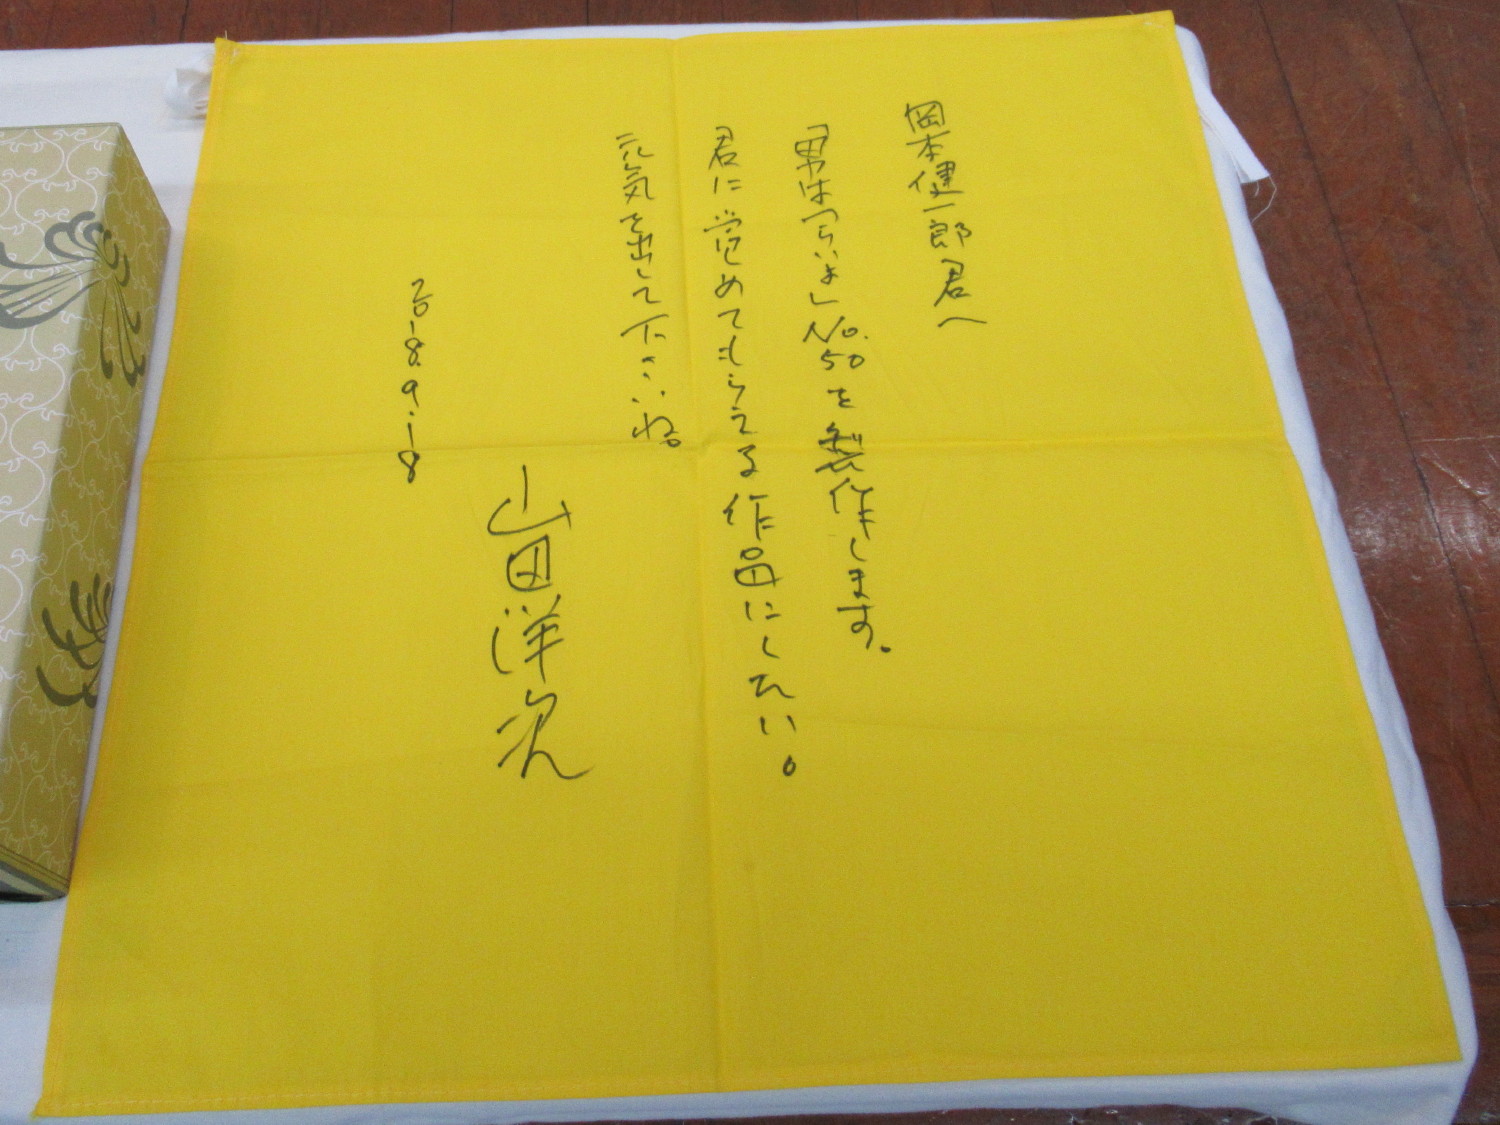 岡本健一郎君へ
「男はつらいよ」No.50を製作します。
君に覚めてもらえる作品にしたい。
元気を出して下さいね。
山田洋次
2018.9.18